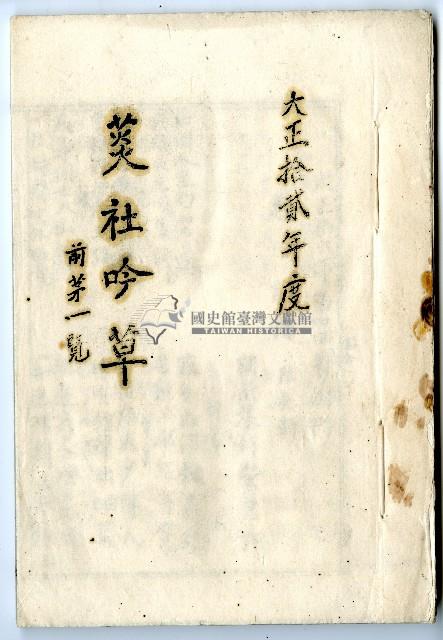 大正拾貳年度
菼社吟草
前茅一覽
國史館臺灣文獻館
TAIWAN HISTORICA